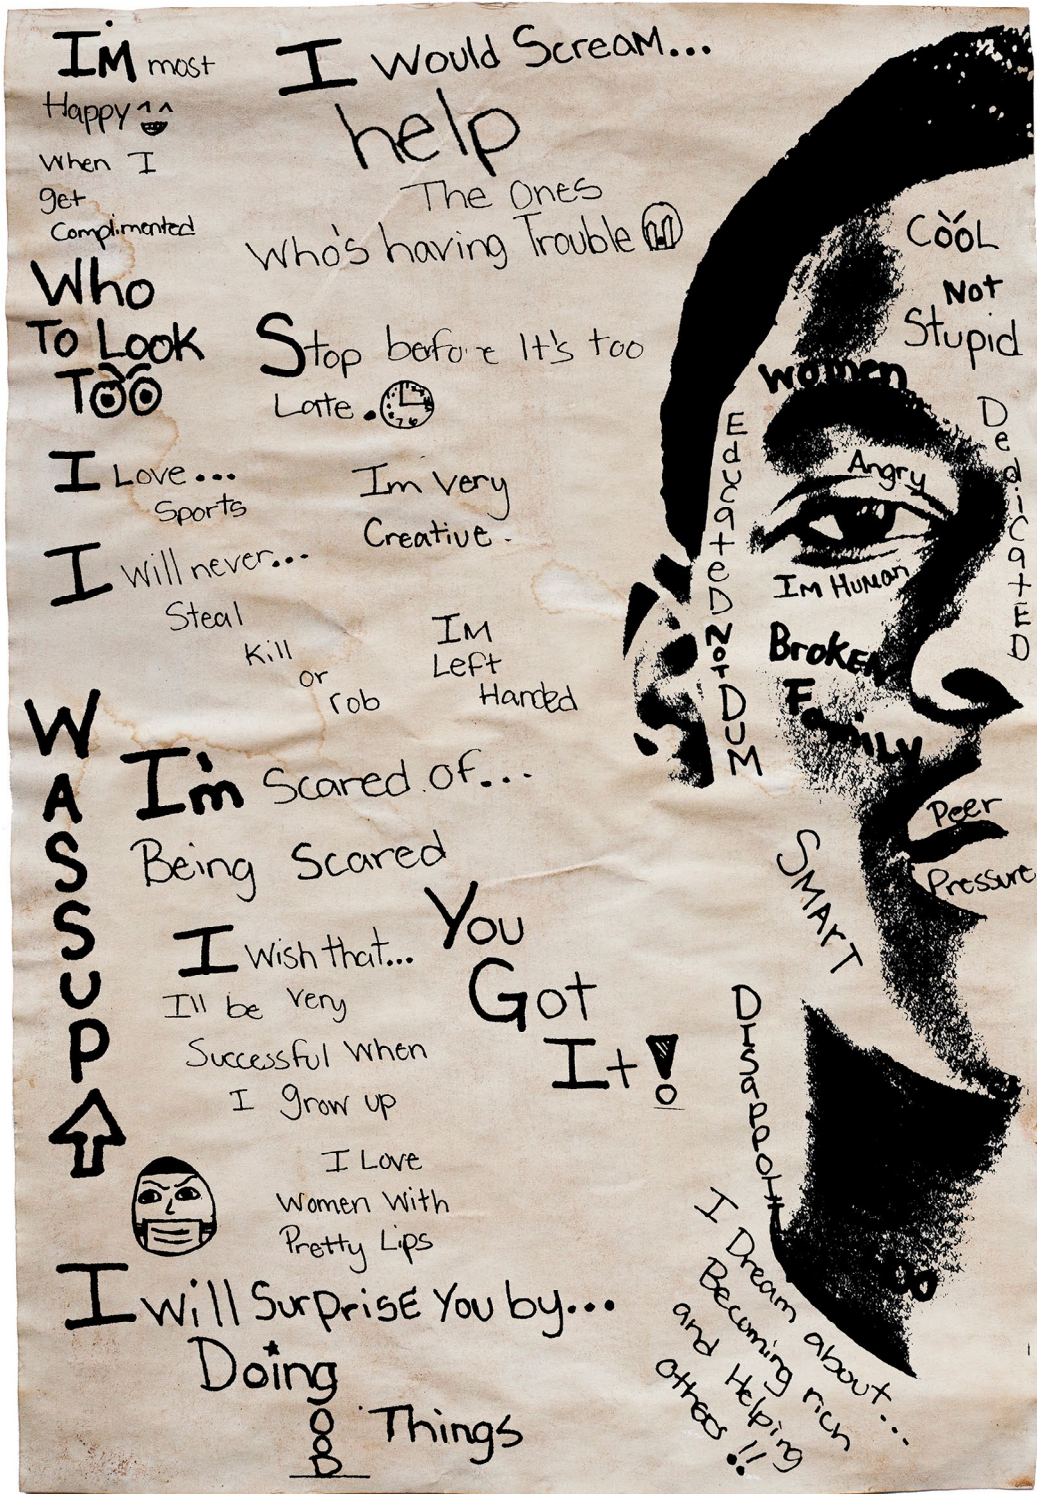 I'M most
Happy
When I
get
Complimented
Who
To Look
Too
I Would Scream...
help
The Ones
Who's having Trouble
Stop before It's too
Late.
I Love...
Sports
Im very
Creative.
I Will never...
Steal
Kill
or
rob
IM
Left
Handed
WASSUP
I'm Scared of...
Being Scared
I Wish that...
I'll be very
Successful When
I grow up
You
Got
It!
I Love
Women With
Pretty Lips
I will SurprisE You by...
Doing
GOOD Things
COOL
Not
Stupid
Women
EducateD NOT DUM
DedicatED
Angry
Im Human
BrokEN
FamiLY
Peer
Pressure
SMArT
I Dream about...
Becoming rich
and Helping
others!!